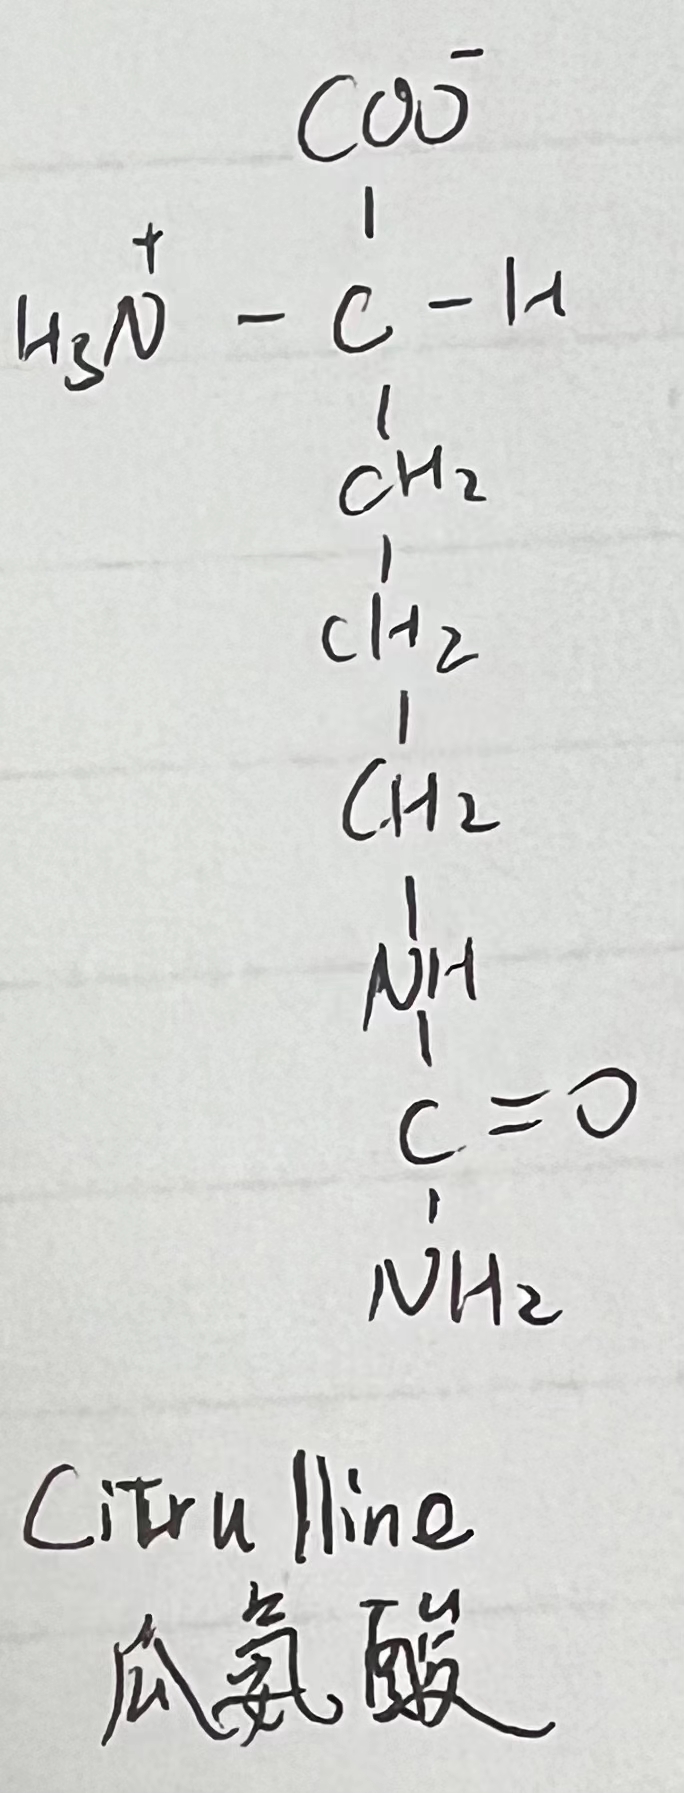 COO⁻
|
H₃N⁺ - C - H
|
CH₂
|
CH₂
|
CH₂
|
NH
|
C = O
|
NH₂
Citrulline
瓜氨酸